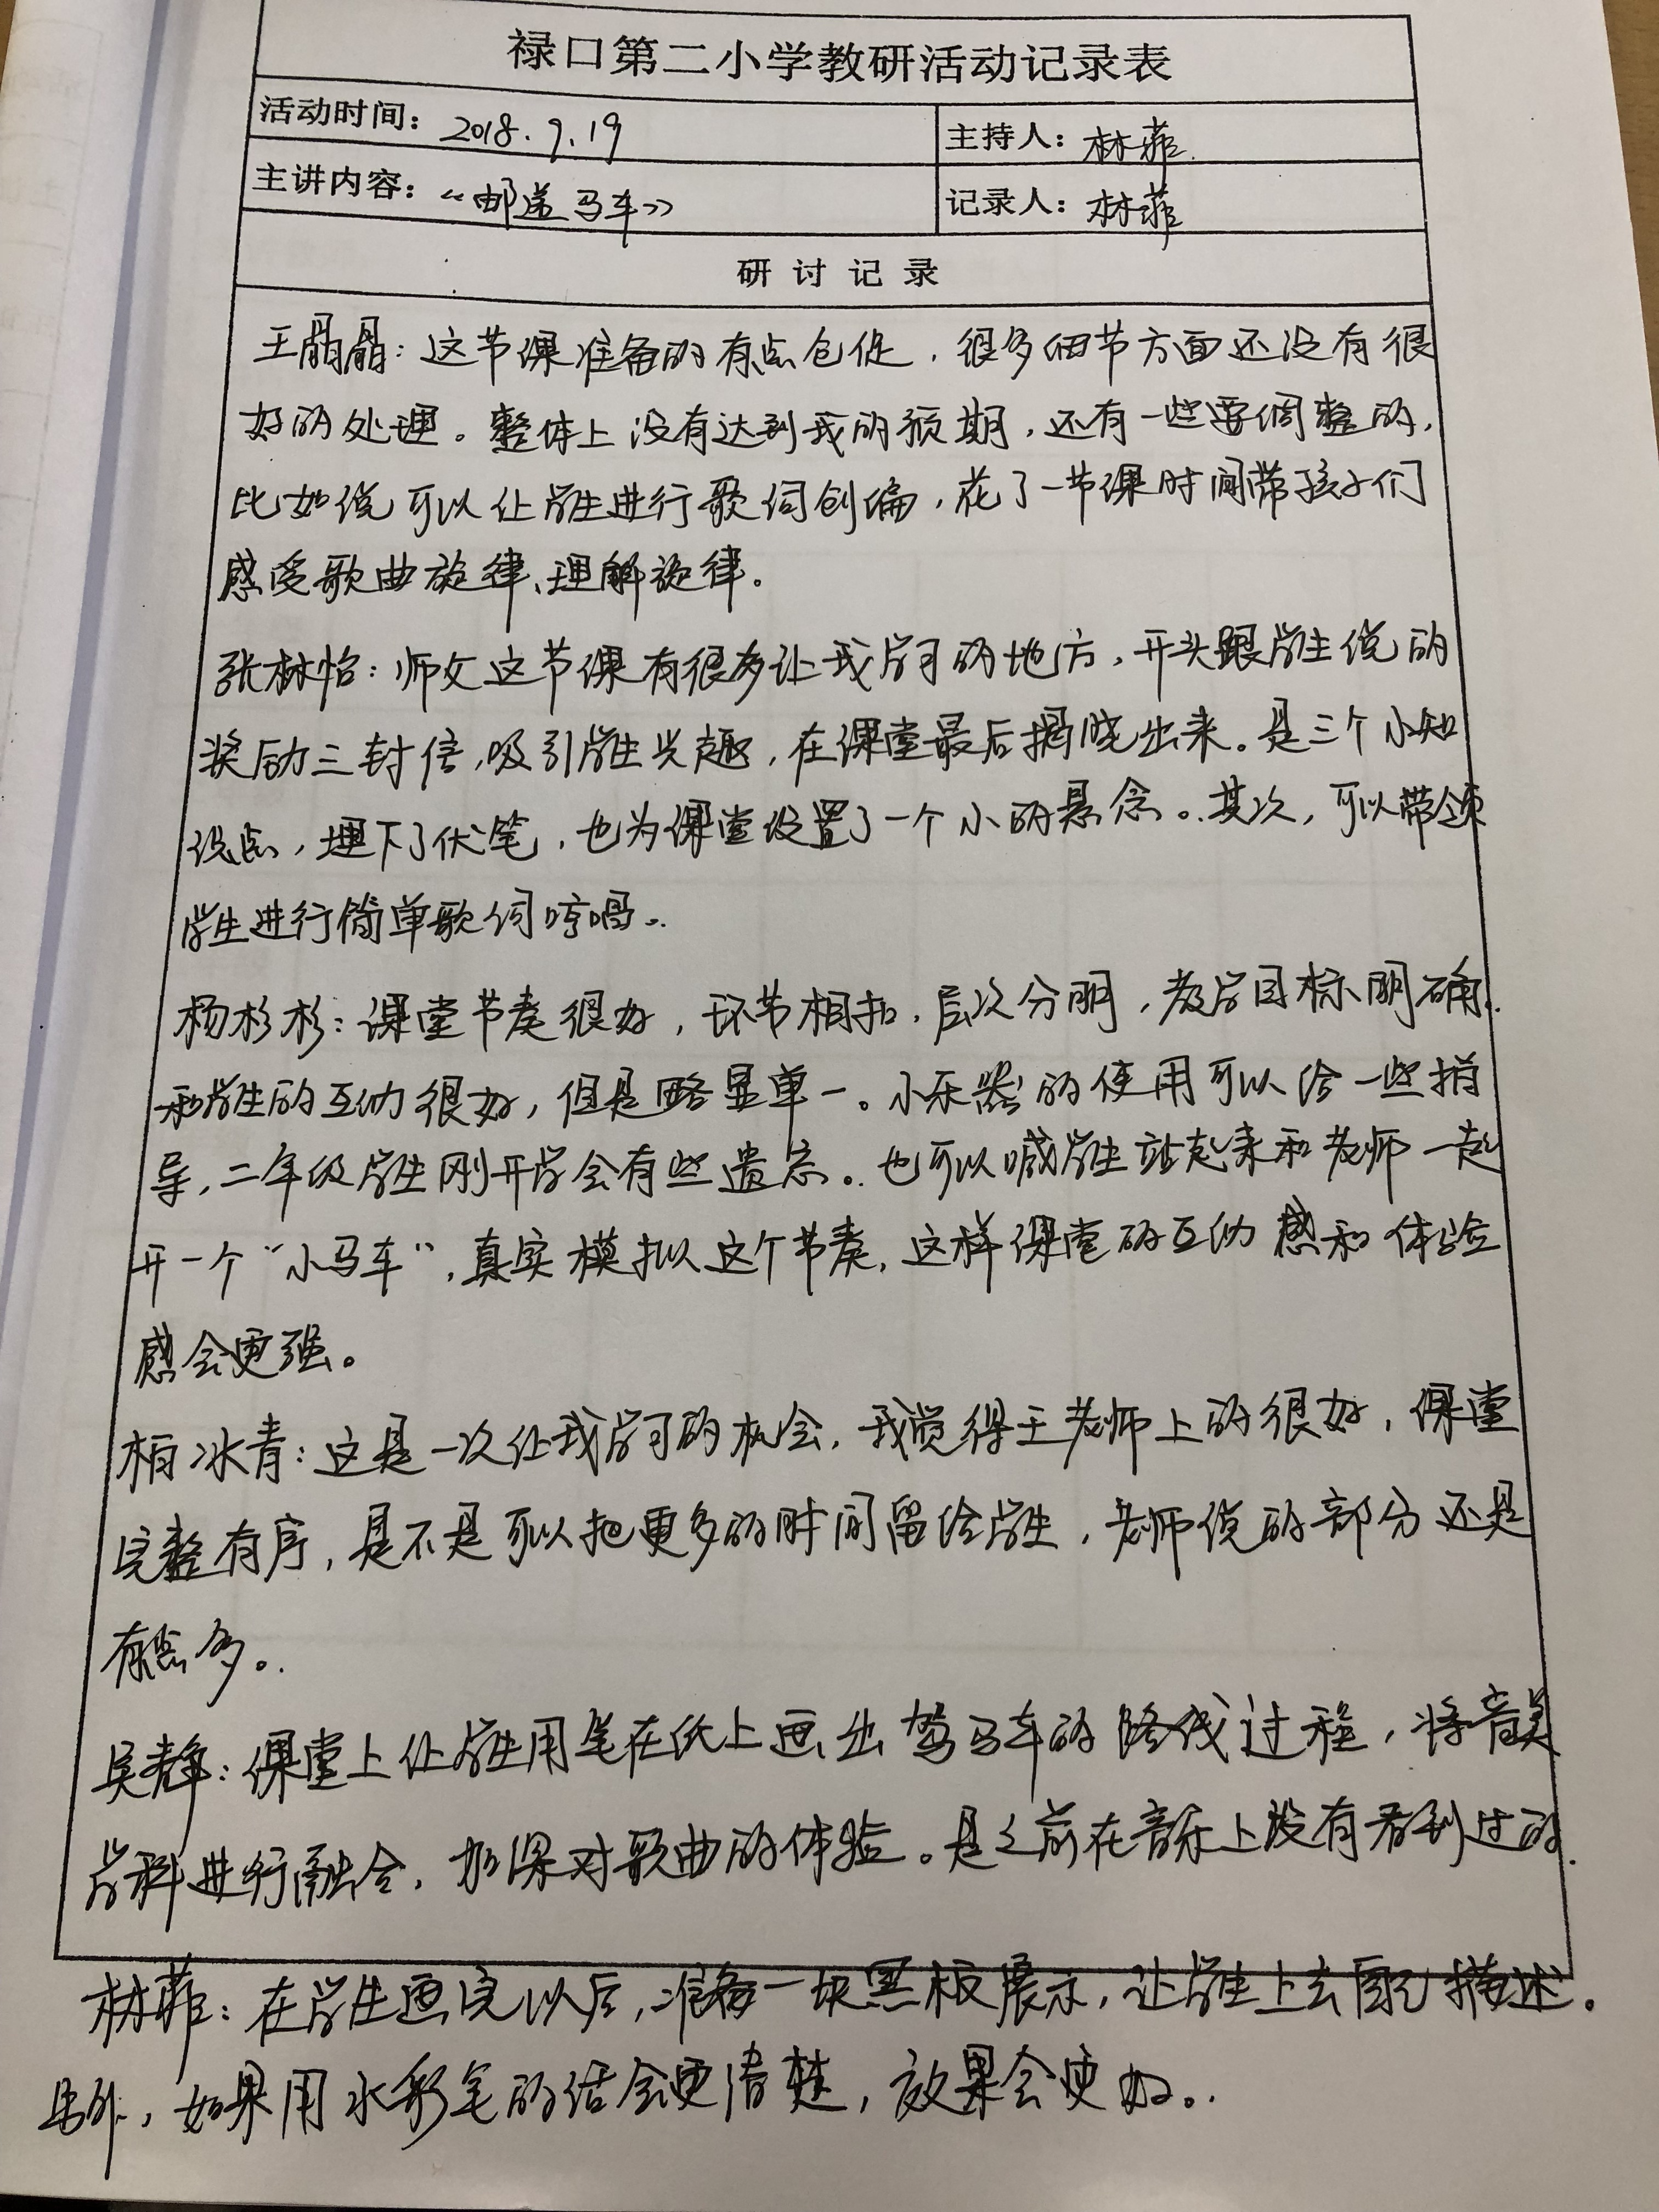 禄口第二小学教研活动记录表
活动时间：2018.9.19
主持人：林菲
主讲内容：《邮递马车》
记录人：林菲
研讨记录
王晶晶：这节课准备的有点仓促，很多细节方面还没有很
好的处理。整体上没有达到我的预期，还有一些要调整的，
比如说可以让学生进行歌词创编，花了一节课时间带孩子们
感受歌曲旋律、理解旋律。
张林怡：师父这节课有很多让我学习的地方，开头跟学生说的
奖励三封信，吸引学生兴趣，在课堂最后揭晓出来。是三个小知
识点，埋下了伏笔，也为课堂设置了一个小的悬念。其次，可以带领
学生进行简单歌词哼唱。
杨杉杉：课堂节奏很好，环节相扣，层次分明，教学目标明确。
和学生的互动很好，但是略显单一。小乐器的使用可以给一些指
导，二年级学生刚开学会有些遗忘。也可以喊学生站起来和老师一起
开一个“小马车”，真实模拟这个节奏，这样课堂的互动感和体验
感会更强。
柏冰青：这是一次让我学习的机会，我觉得王老师上的很好，课堂
完整有序，是不是可以把更多的时间留给学生，老师说的部分还是
有点多。
吴静：课堂上让学生用笔在纸上画出驾马车的路线过程，将音美
学科进行融合，加深对歌曲的体验。是之前在音乐上没有看到过的.
林菲：在学生画完以后，准备一块黑板展示，让学生上去自己描述。
另外，如果用水彩笔的话会更清楚，效果会更好。